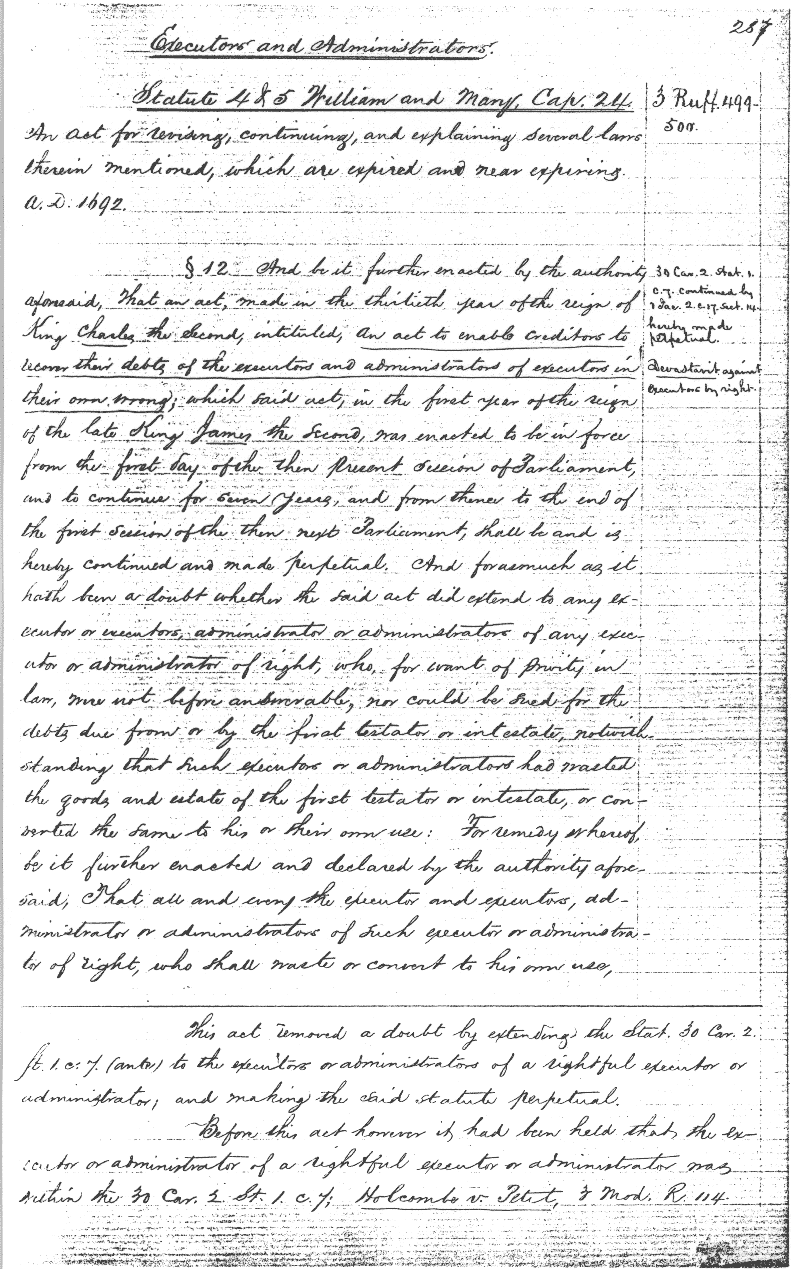 287
Executors and Administrators.
Statute 4 & 5 William and Mary, Cap. 24.
3 Ruff. 499-
500.
An act for revising, continuing, and explaining several laws
therein mentioned, which are expired and near expiring.
A.D. 1692.
§ 12. And be it further enacted by the authority
aforesaid, That an act, made in the thirtieth year of the reign of
King Charles the Second, intituled, An act to enable creditors to
recover their debts of the executors and administrators of executors in
their own wrong; which said act, in the first year of the reign
of the late King James the Second, was enacted to be in force
from the first day of the then Present Session of Parliament,
and to continue for seven Years, and from thence to the end of
the first Session of the then next Parliament, shall be and is
hereby continued and made perpetual. And forasmuch as it
hath been a doubt whether the said act did extend to any ex-
ecutor or executors, administrator or administrators of any exec-
utor or administrator of right, who, for want of privity in
law, were not before answerable, nor could be sued for the
debts due from or by the first testator or intestate, notwith-
standing that such executors or administrators had wasted
the goods and estate of the first testator or intestate, or con-
verted the same to his or their own use: For remedy whereof,
be it further enacted and declared by the authority afore-
said, That all and every the executor and executors, ad-
ministrator or administrators of such executor or administra-
tor of right, who shall waste or convert to his own use,
30 Car. 2. Stat. 1.
c. 7. continued by
1 Jac. 2. c. 17. Sect. 14.
hereby made
perpetual.
Devastavit against
executors by right.
This act removed a doubt by extending the Stat. 30 Car. 2.
St. 1. c. 7. (ante) to the executors or administrators of a rightful executor or
administrator; and making the said statute perpetual.
Before this act however it had been held that the ex-
ecutor or administrator of a rightful executor or administrator was
within the 30 Car. 2 St. 1. c. 7; Holcombe v. Petit, 3 Mod. R. 114.